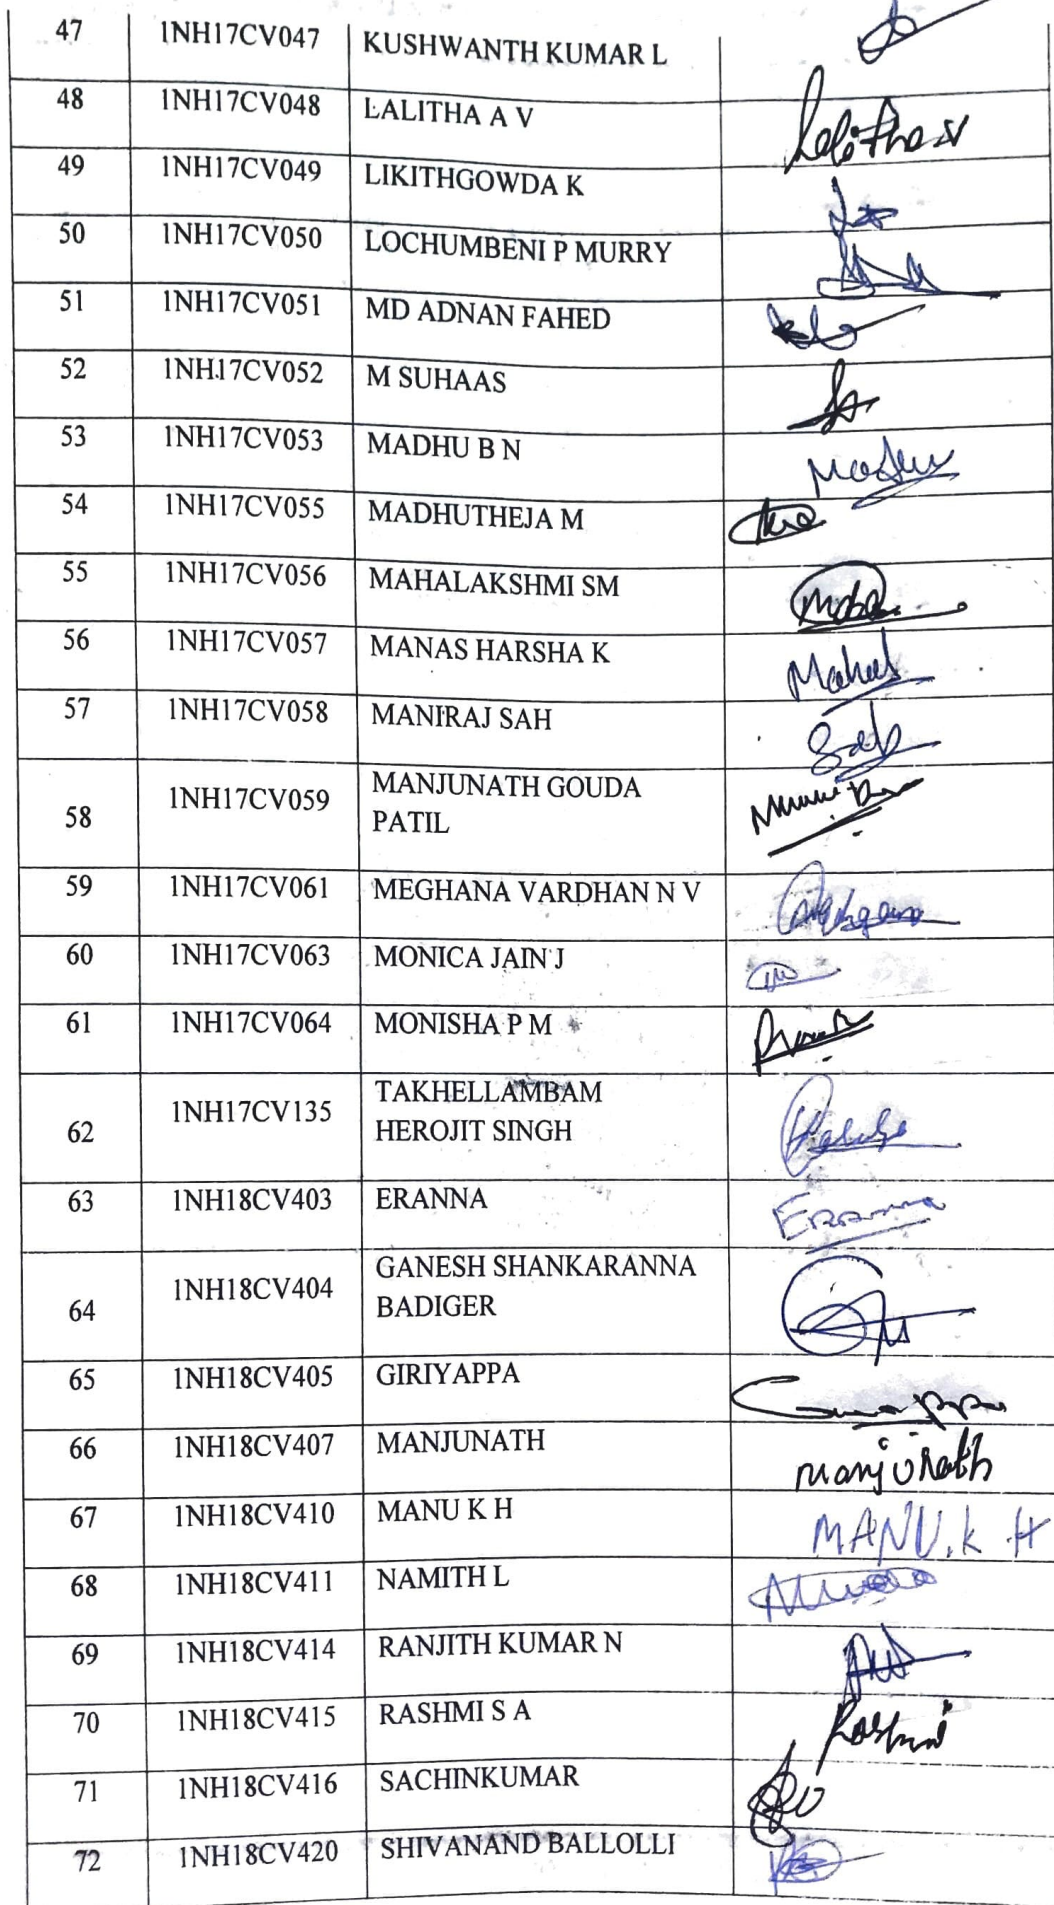 47 1NH17CV047 KUSHWANTH KUMAR L
48 1NH17CV048 LALITHA A V Lalitha AV
49 1NH17CV049 LIKITHGOWDA K
50 1NH17CV050 LOCHUMBENI P MURRY
51 1NH17CV051 MD ADNAN FAHED
52 1NH17CV052 M SUHAAS
53 1NH17CV053 MADHU B N Madhu
54 1NH17CV055 MADHUTHEJA M
55 1NH17CV056 MAHALAKSHMI SM
56 1NH17CV057 MANAS HARSHA K
57 1NH17CV058 MANIRAJ SAH
58 1NH17CV059 MANJUNATH GOUDA
PATIL
59 1NH17CV061 MEGHANA VARDHAN N V
60 1NH17CV063 MONICA JAIN J
61 1NH17CV064 MONISHA P M
62 1NH17CV135 TAKHELLAMBAM
HEROJIT SINGH
63 1NH18CV403 ERANNA Eranna
64 1NH18CV404 GANESH SHANKARANNA
BADIGER
65 1NH18CV405 GIRIYAPPA
66 1NH18CV407 MANJUNATH Manjunath
67 1NH18CV410 MANU K H MANU.K H
68 1NH18CV411 NAMITH L
69 1NH18CV414 RANJITH KUMAR N
70 1NH18CV415 RASHMI S A Rashmi
71 1NH18CV416 SACHINKUMAR
72 1NH18CV420 SHIVANAND BALLOLLI